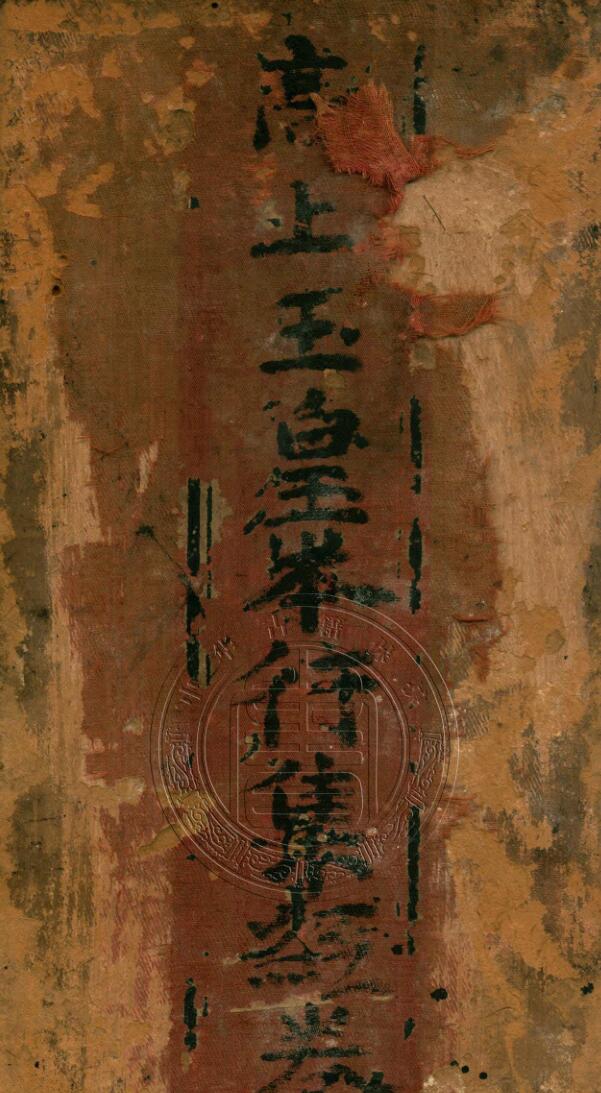 高上玉皇本行集經卷